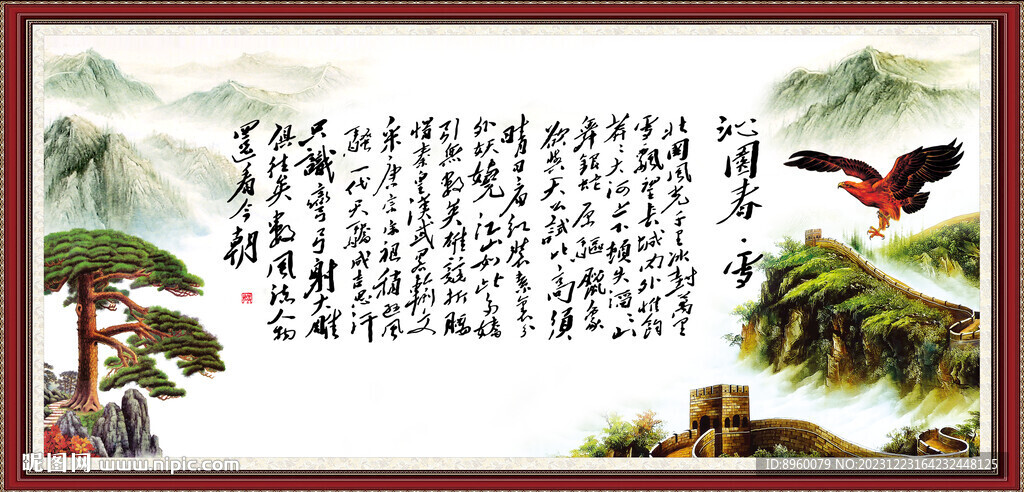 沁園春 雪
北國風光千里冰封萬里
雪飄望长城内外惟餘
莽〻大河上下頓失滔〻山
舞銀蛇原驅臘象
欲與天公試比高須
晴日看红裝素裹分
外妖嬈 江山如此多嬌
引無數英雄競折腰
惜秦皇漢武略輸文
采唐宗宋祖稍遜風
騷一代天驕成吉思汗
只識彎弓射大雕
俱往矣數風流人物
還看今朝
昵图网 www.nipic.com
ID:8960079 NO:20231223164232448125